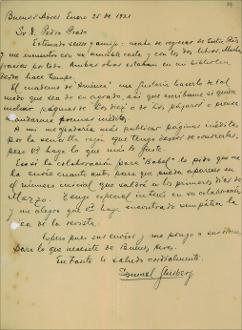 Buenos Aires Enero 25 de 1921
Sr. D. Pedro Prado
Estimado señor y amigo: acabo de regresar de Entre Ríos
y me encuentro con su amable carta y con los dos libros. Muchas
gracias por todo. Ambas obras estaban en mi biblioteca
desde hace tiempo.
El cuaderno de "América" me gustaría hacerlo de tal
modo que sea de su agrado, así que escríbame si quiere
páginas de "Los Diez" o de "Los pájaros" o prosa
poemas inéditos.
A mí me gustaría más publicar páginas inéditas
por la sencilla razón que tengo deseos de conocerlas,
pero haga lo que más le guste.
la colaboración para "Babel" le pido que me
la envíe cuanto antes para que pueda aparecer en
el número inicial que saldrá en los primeros días de
Marzo. Tengo especial interés en su colaboración
y me alegra que haya encontrado simpática la
idea de la revista.
Espero pues sus envíos y me pongo a sus órdenes
para lo que necesite de Buenos Aires.
Entretanto le saludo cordialmente.
Samuel Glusberg